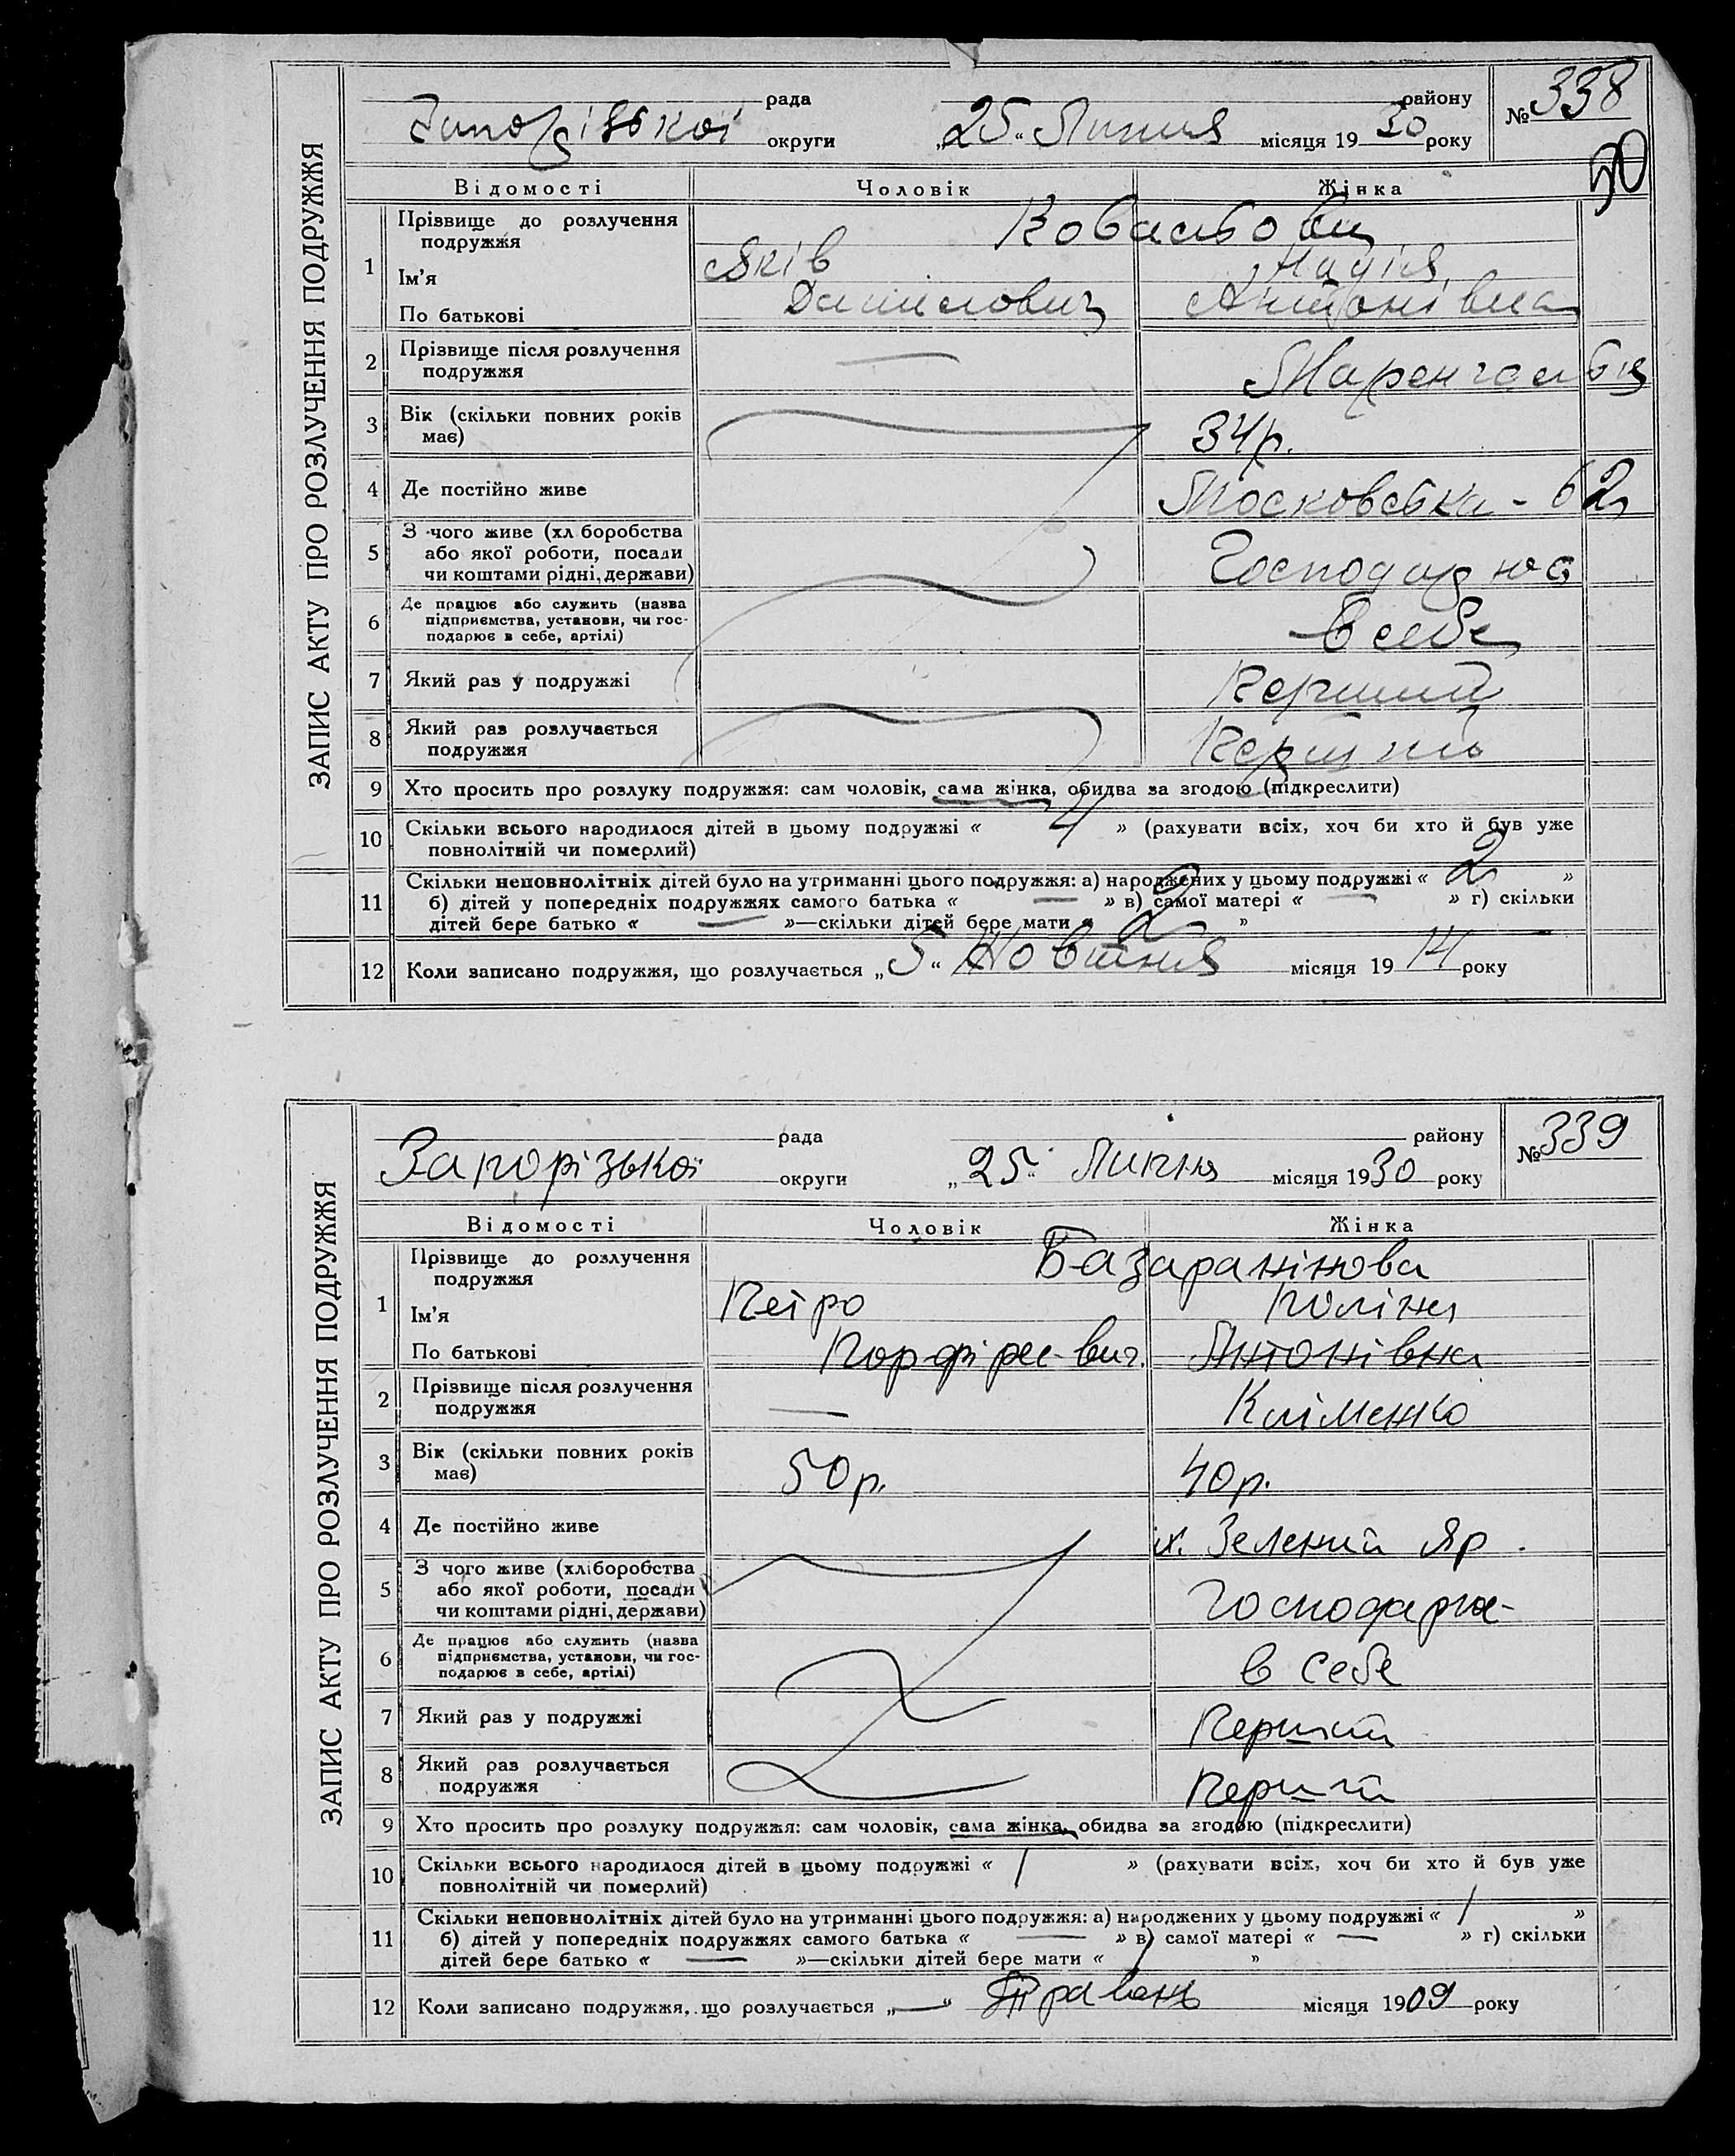 ЗАПИС АКТУ ПРО РОЗЛУЧЕННЯ ПОДРУЖЖЯ
рада району № 338
Запорізької округи „25“ Липня місяця 1930 року
50
Відомості Чоловік Жінка
1 Прізвище до розлучення подружжя
Ім'я Яків Надія
По батькові Данилович Антонівна
2 Прізвище після розлучення подружжя —
3 Вік (скільки повних років має) 34р.
4 Де постійно живе Московська - 62
5 З чого живе (хліборобства
або якої роботи, посади
чи коштами рідні, держави) Господарка
6 Де працює або служить (назва
підприємства, установи, чи гос-
подарює в себе, артілі) в себе
7 Який раз у подружжі Перший
8 Який раз розлучається
подружжя Перший
9 Хто просить про розлуку подружжя: сам чоловік, сама жінка, обидва за згодою (підкреслити)
10 Скільки всього народилося дітей в цьому подружжі « 4 » (рахувати всіх, хоч би хто й був уже
повнолітній чи померлий)
11 Скільки неповнолітніх дітей було на утриманні цього подружжя: а) народжених у цьому подружжі « 2 »
б) дітей у попередніх подружжях самого батька « — » в) самої матері « — » г) скільки
дітей бере батько « — »—скільки дітей бере мати « 2 »
12 Коли записано подружжя, що розлучається „5“ Жовтня місяця 1914 року
ЗАПИС АКТУ ПРО РОЗЛУЧЕННЯ ПОДРУЖЖЯ
рада району № 339
Запорізької округи „25“ Липня місяця 1930 року
Відомості Чоловік Жінка
1 Прізвище до розлучення
подружжя Базаранінова
Ім'я Петро Поліна
По батькові Порфірєвич Антонівна
2 Прізвище після розлучення
подружжя — Кліменко
3 Вік (скільки повних років
має) 50р. 40р.
4 Де постійно живе х. Зелений Яр.
5 З чого живе (хліборобства
або якої роботи, посади
чи коштами рідні, держави) Господарка
6 Де працює або служить (назва
підприємства, установи, чи гос-
подарює в себе, артілі) в себе
7 Який раз у подружжі Перший
8 Який раз розлучається
подружжя Перший
9 Хто просить про розлуку подружжя: сам чоловік, сама жінка, обидва за згодою (підкреслити)
10 Скільки всього народилося дітей в цьому подружжі « 1 » (рахувати всіх, хоч би хто й був уже
повнолітній чи померлий)
11 Скільки неповнолітніх дітей було на утриманні цього подружжя: а) народжених у цьому подружжі « 1 »
б) дітей у попередніх подружжях самого батька « — » в) самої матері « — » г) скільки
дітей бере батько « — »—скільки дітей бере мати « 1 »
12 Коли записано подружжя, що розлучається „—“ Травань місяця 1909 року